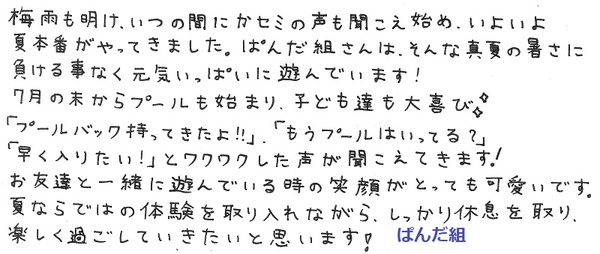 梅雨も明け、いつの間にかセミの声も聞こえ始め、いよいよ
夏本番がやってきました。ぱんだ組さんは、そんな真夏の暑さに
負ける事なく元気いっぱいに遊んでいます!
7月の末からプールも始まり、子ども達も大喜び✧
「プールバック持ってきたよ!!」、「もうプールはいってる?」
「早く入りたい!」とワクワクした声が聞こえてきます!
お友達と一緒に遊んでいる時の笑顔がとっても可愛いです。
夏ならではの体験を取り入れながら、しっかり休息を取り、
楽しく過ごしていきたいと思います! ぱんだ組